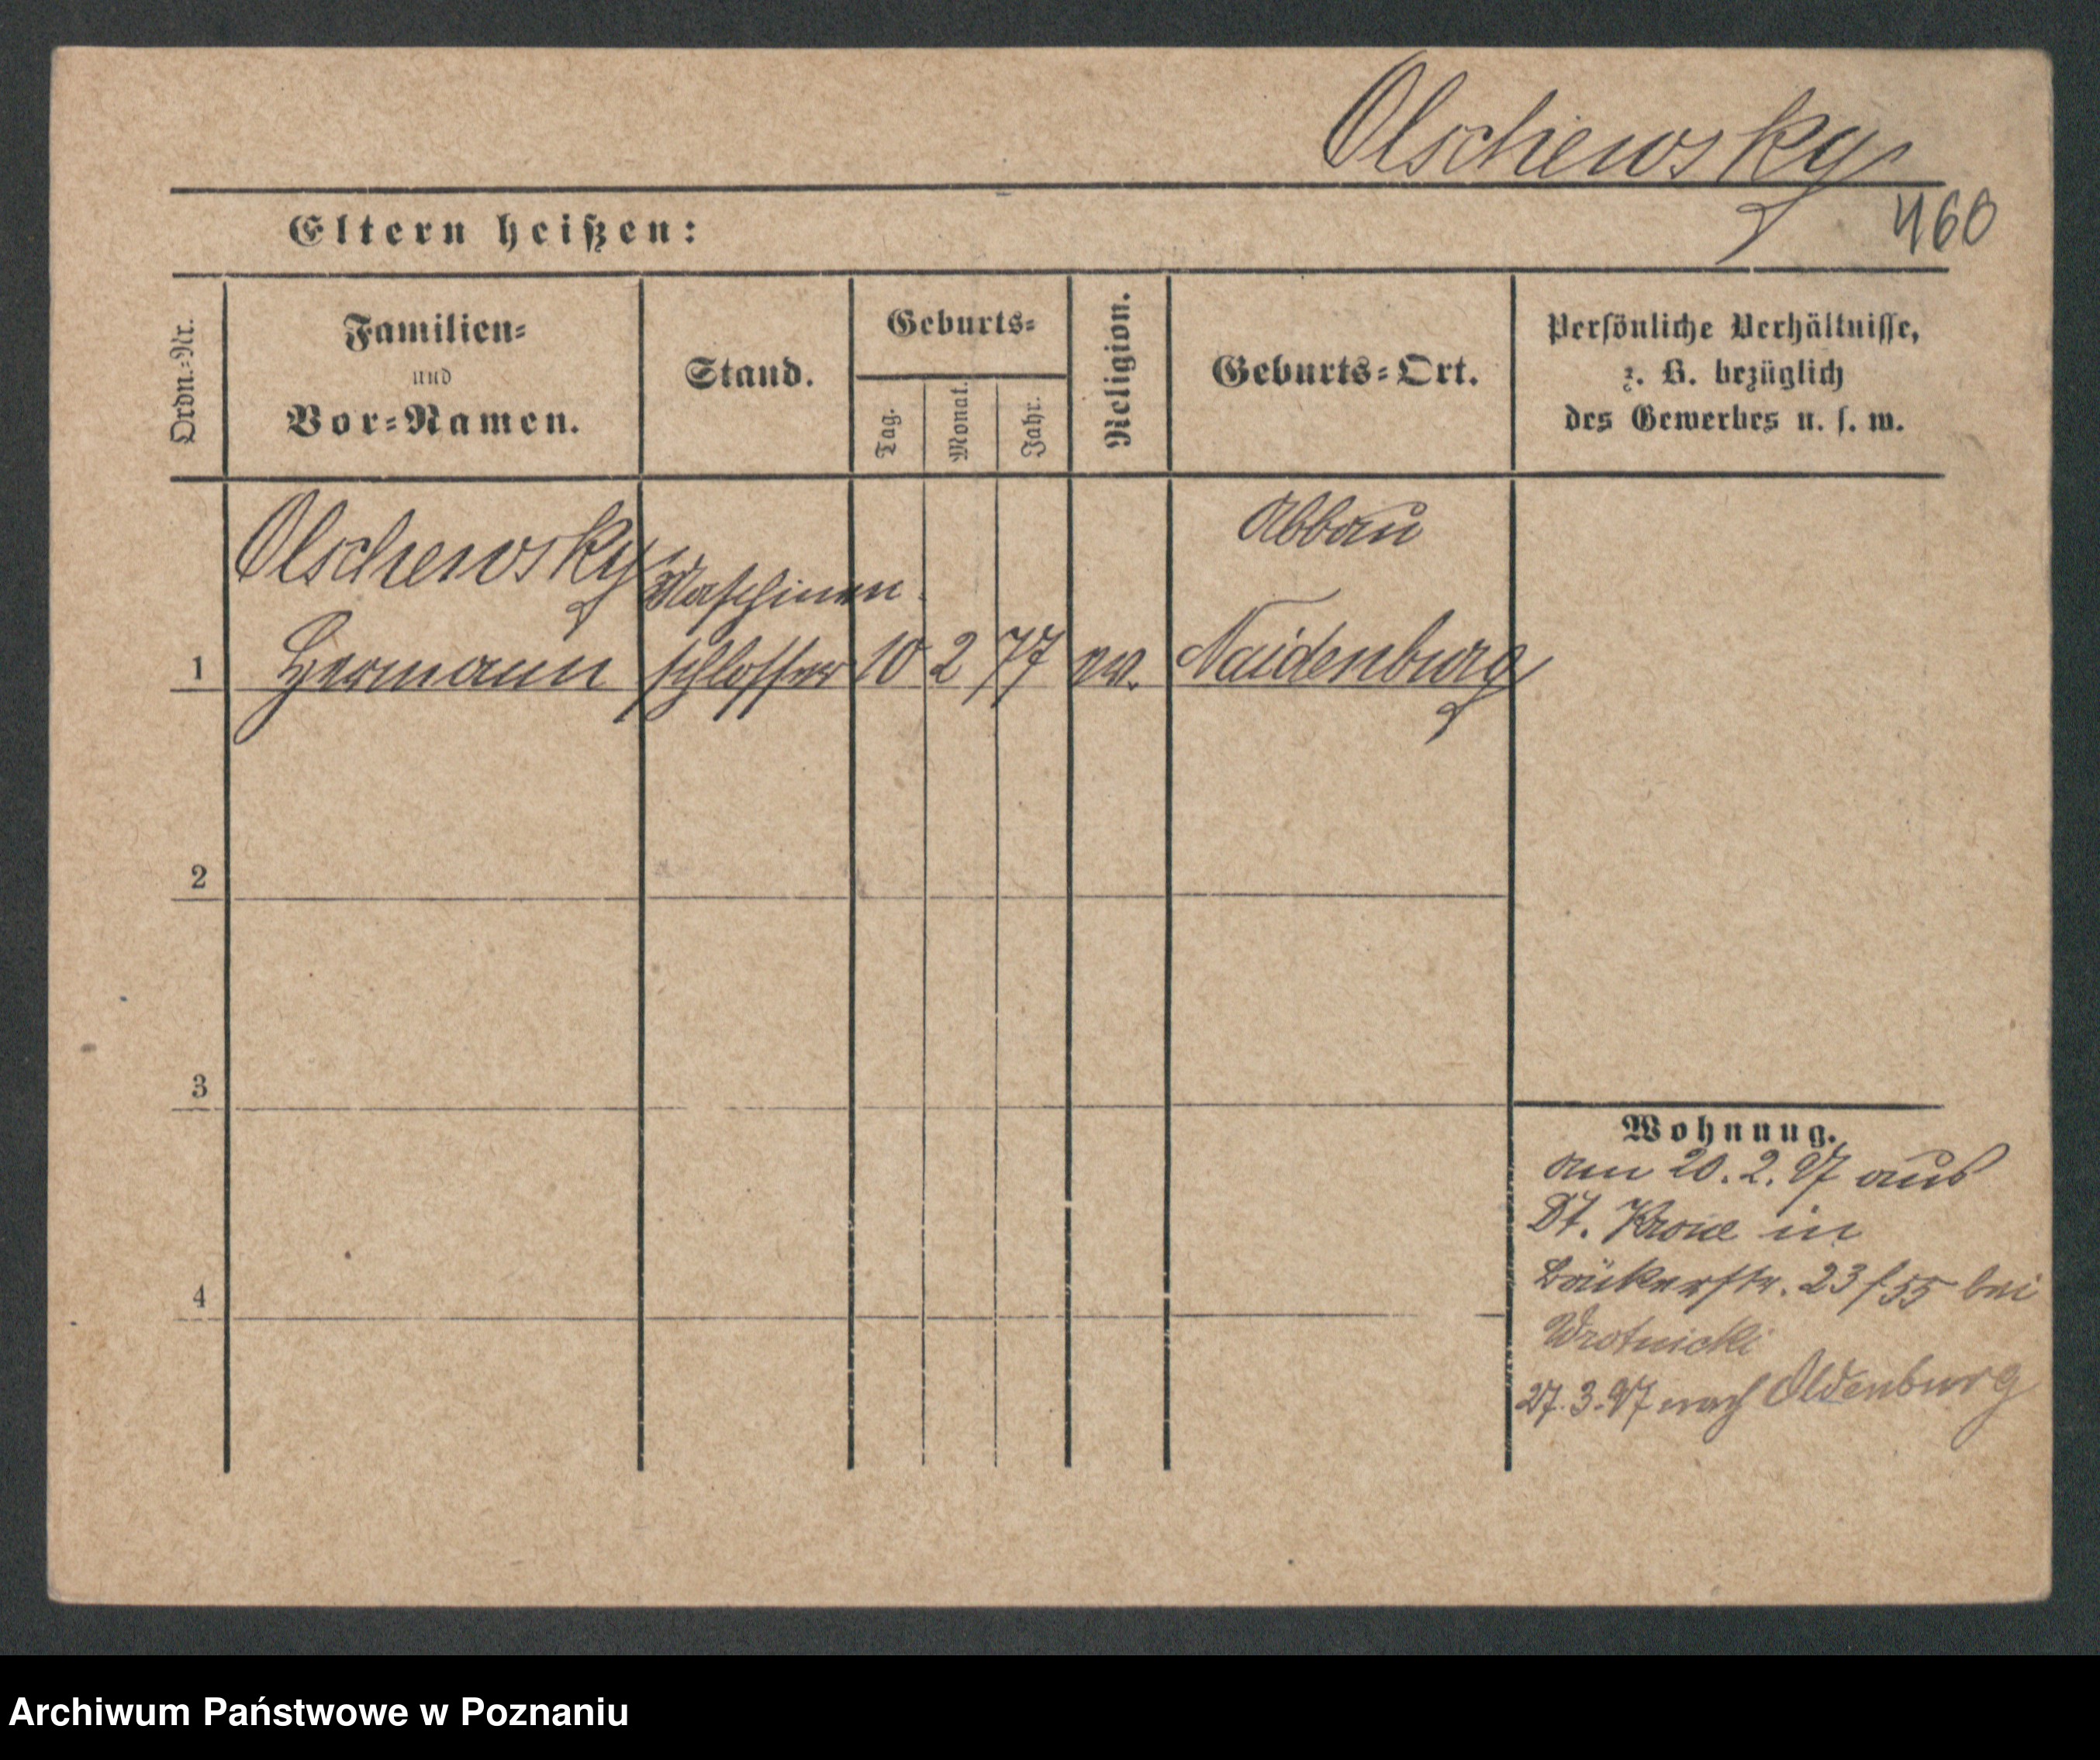 Olschewsky
460
Eltern heißen:
Ordn.=Nr.
Familien=
und
Vor=Namen.
Stand.
Geburts=
Tag.
Monat.
Jahr.
Religion.
Geburts=Ort.
Persönliche Verhältnisse,
z. B. bezüglich
des Gewerbes u. s. w.
Olschewsky
Hermann
Maschinen
schlosser
1
10 2 77
ev.
Abbau
Naidenburg
2
3
4
Wohnung.
am 20. 2. 97 aus
Dt. Krone in
Bäckerstr. 23 f 55 bei
Wrotnicki
27. 3. 97 nach Oldenburg
Archiwum Państwowe w Poznaniu